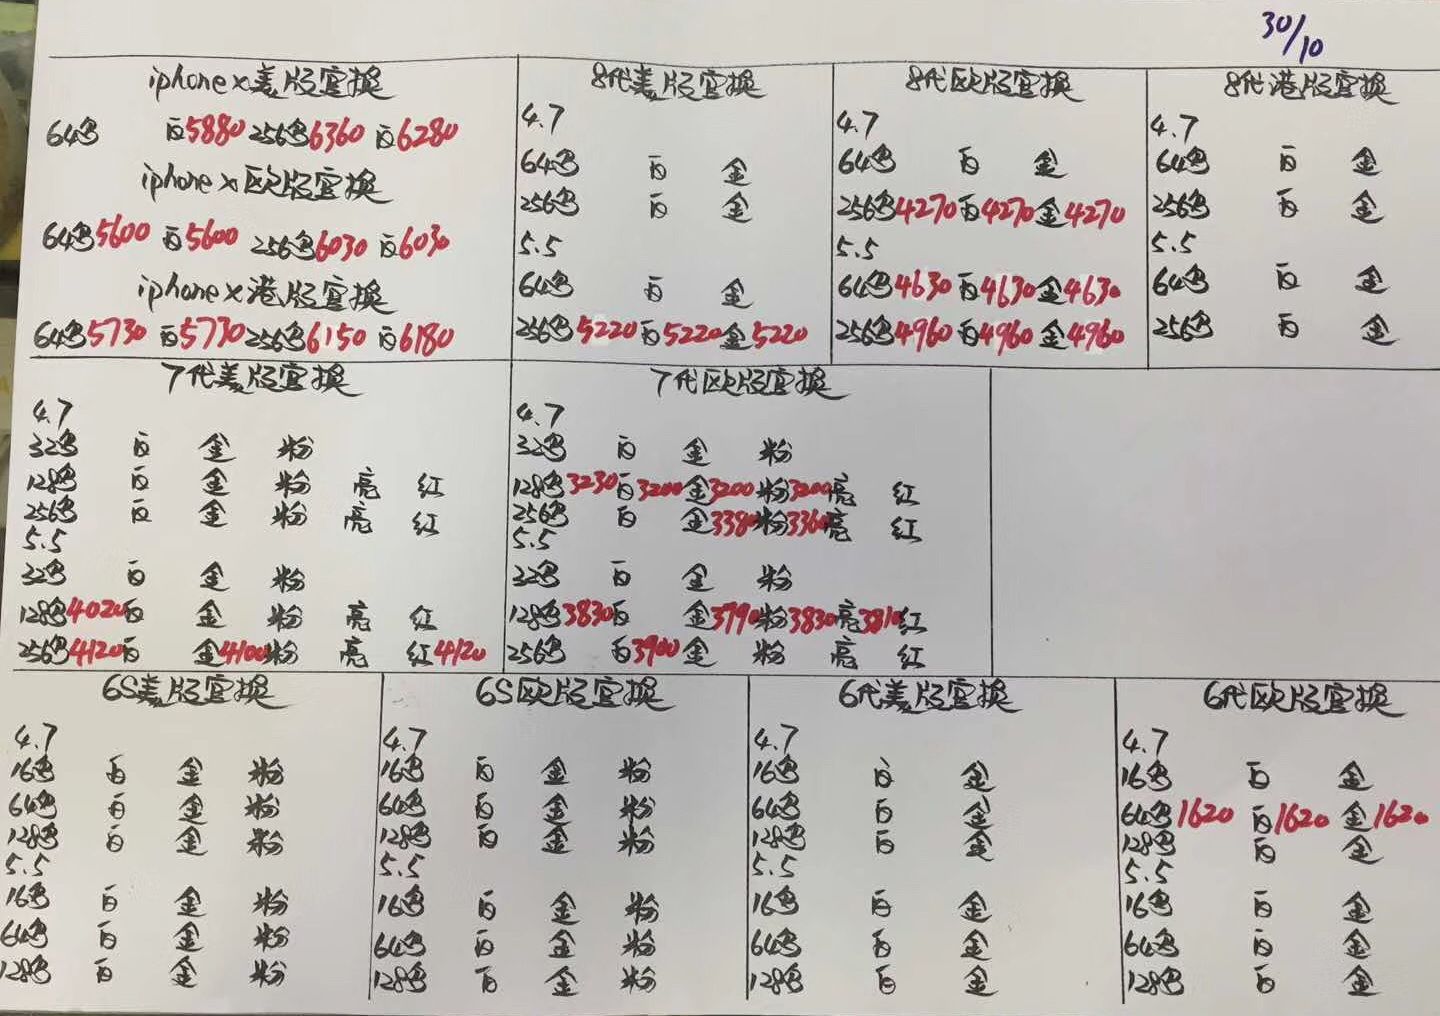 30/10
iphone x美版官换
64黑 白5880 256黑6360 白6280
iphone x欧版官换
64黑5600 白5600 256黑6030 白6030
iphone x港版官换
64黑5730 白5730 256黑6150 白6180
8代美版官换
4.7
64黑 白 金
256黑 白 金
5.5
64黑 白 金
256黑5220白5220金5220
8代欧版官换
4.7
64黑 白 金
256黑4270白4270金4270
5.5
64黑4630白4630金4630
256黑4960白4960金4960
8代港版官换
4.7
64黑 白 金
256黑 白 金
5.5
64黑 白 金
256黑 白 金
7代美版官换
4.7
32黑 白 金 粉
128黑 白 金 粉 亮 红
256黑 白 金 粉 亮 红
5.5
32黑 白 金 粉
128黑4020白 金 粉 亮 红
256黑4120白 金4100粉 亮 红4120
7代欧版官换
4.7
32黑 白 金 粉
128黑3230白3200金3200粉3200亮 红
256黑 白 金3380粉3360亮 红
5.5
32黑 白 金 粉
128黑3830白 金3790粉3830亮3810红
256黑 白3900金 粉 亮 红
6S美版官换
4.7
16黑 白 金 粉
64黑 白 金 粉
128黑 白 金 粉
5.5
16黑 白 金 粉
64黑 白 金 粉
128黑 白 金 粉
6S欧版官换
4.7
16黑 白 金 粉
64黑 白 金 粉
128黑 白 金 粉
5.5
16黑 白 金 粉
64黑 白 金 粉
128黑 白 金 粉
6代美版官换
4.7
16黑 白 金
64黑 白 金
128黑 白 金
5.5
16黑 白 金
64黑 白 金
128黑 白 金
6代欧版官换
4.7
16黑 白 金
64黑1620 白1620 金1620
128黑 白 金
5.5
16黑 白 金
64黑 白 金
128黑 白 金